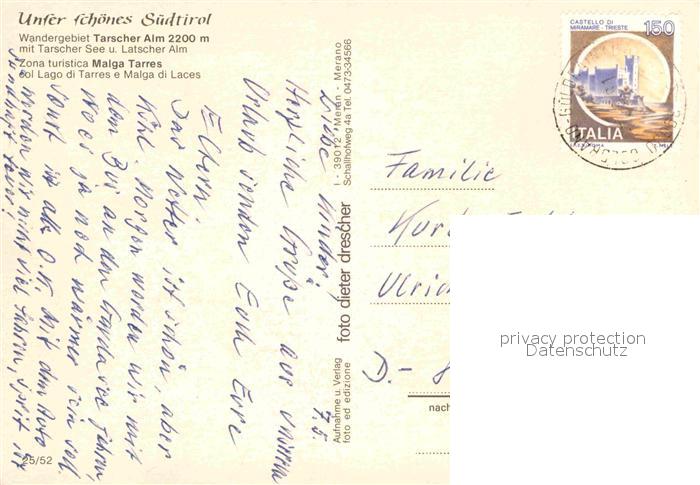 Unser schönes Südtirol
Wandergebiet Tarscher Alm 2200 m
mit Tarscher See u. Latscher Alm
Zona turistica Malga Tarres
col Lago di Tarres e Malga di Laces
25/52
7.5.
Liebe Kinder,
Herzliche Grüße aus unserm
Urlaub senden Euch Eure
Eltern.
Das Wetter ist schön, aber
kühl. Morgen werden wir mit
dem Bus an den Gardasee fahren,
wo es ja noch wärmer sein soll.
Sonst ist alles O.K. Mit dem Auto
werden wir nicht viel fahren, Sprit ist
teuer!
Aufnahme u. Verlag
foto ed edizione
foto dieter drescher
I - 39012 Meran - Merano
Schallhofweg 4a Tel. 0473-34566
CASTELLO DI
MIRAMARE - TRIESTE
150
ITALIA
Familie
Kurt
Ulric
D.-
nach
privacy protection
Datenschutz